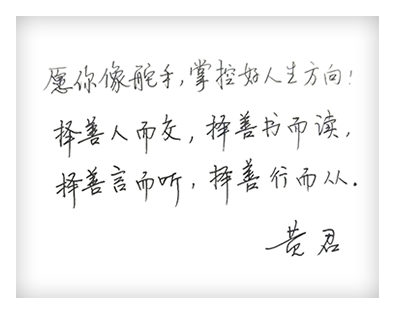 愿你像舵手，掌控好人生方向！
择善人而交，择善书而读，
择善言而听，择善行而从.
黄君